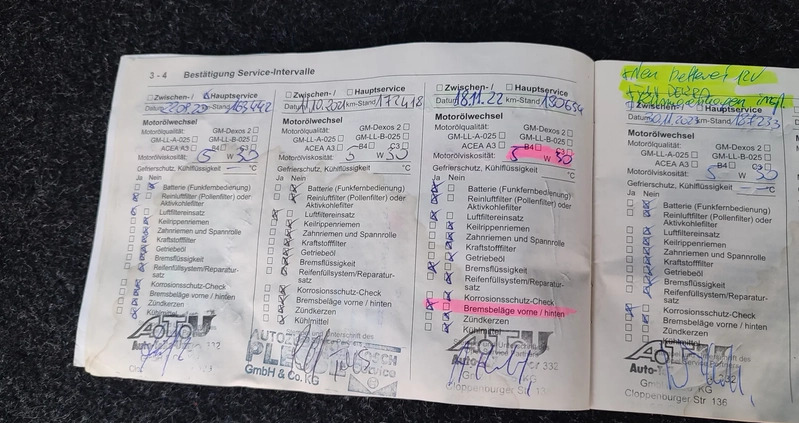 3 - 4 Bestätigung Service-Intervalle
Zwischen- / Hauptservice
Datum 163442
Motorölwechsel
Motorölqualität: GM-Dexos 2
GM-LL-A-025 GM-LL-B-025
ACEA A3 B4 C3
Motorölviskosität: 5 W 30
Gefrierschutz, Kühlflüssigkeit °C
Ja Nein
Batterie (Funkfernbedienung)
Reinluftfilter (Pollenfilter) oder
Aktivkohlefilter
Luftfiltereinsatz
Keilrippenriemen
Zahnriemen und Spannrolle
Kraftstofffilter
Getriebeöl
Bremsflüssigkeit
Reifenfüllsystem/Reparatur-
satz
Korrosionsschutz-Check
Bremsbeläge vorne / hinten
Zündkerzen
Kühlmittel
332
Zwischen- / Hauptservice
10.2021 km-Stand 172418
Motorölwechsel
Motorölqualität: GM-Dexos 2
GM-LL-A-025 GM-LL-B-025
ACEA A3 B4 C3
Motorölviskosität: 5 W 30
Gefrierschutz, Kühlflüssigkeit °C
Ja Nein
Batterie (Funkfernbedienung)
Reinluftfilter (Pollenfilter) oder
Aktivkohlefilter
Luftfiltereinsatz
Keilrippenriemen
Zahnriemen und Spannrolle
Kraftstofffilter
Getriebeöl
Bremsflüssigkeit
Reifenfüllsystem/Reparatur-
satz
Korrosionsschutz-Check
Bremsbeläge vorne / hinten
Zündkerzen
Kühlmittel
GmbH & Co. KG
Zwischen- / Hauptservice
Datum 18.11.22 km-Stand 180654
Motorölwechsel
Motorölqualität: GM-Dexos 2
GM-LL-A-025 GM-LL-B-025
ACEA A3 B4 C3
Motorölviskosität: 5 W 30
Gefrierschutz, Kühlflüssigkeit °C
Ja Nein
Batterie (Funkfernbedienung)
Reinluftfilter (Pollenfilter) oder
Aktivkohlefilter
Luftfiltereinsatz
Keilrippenriemen
Zahnriemen und Spannrolle
Kraftstofffilter
Getriebeöl
Bremsflüssigkeit
Reifenfüllsystem/Reparatur-
satz
Korrosionsschutz-Check
Bremsbeläge vorne / hinten
Zündkerzen
Kühlmittel
332
Cloppenburger Str
12V
Zwischen- / Hauptservice
Datum 30.11.2023 km-Stand 187233
Motorölwechsel
Motorölqualität: GM-Dexos 2
GM-LL-A-025 GM-LL-B-025
ACEA A3 B4 C3
Motorölviskosität: 5 W 30
Gefrierschutz, Kühlflüssigkeit °C
Ja Nein
Batterie (Funkfernbedienung)
Reinluftfilter (Pollenfilter) oder
Aktivkohlefilter
Luftfiltereinsatz
Keilrippenriemen
Zahnriemen und Spannrolle
Kraftstofffilter
Getriebeöl
Bremsflüssigkeit
Reifenfüllsystem/Reparatur-
satz
Korrosionsschutz-Check
Bremsbeläge vorne / hinten
Zündkerzen
Kühlmittel
Cloppenburger Str 136